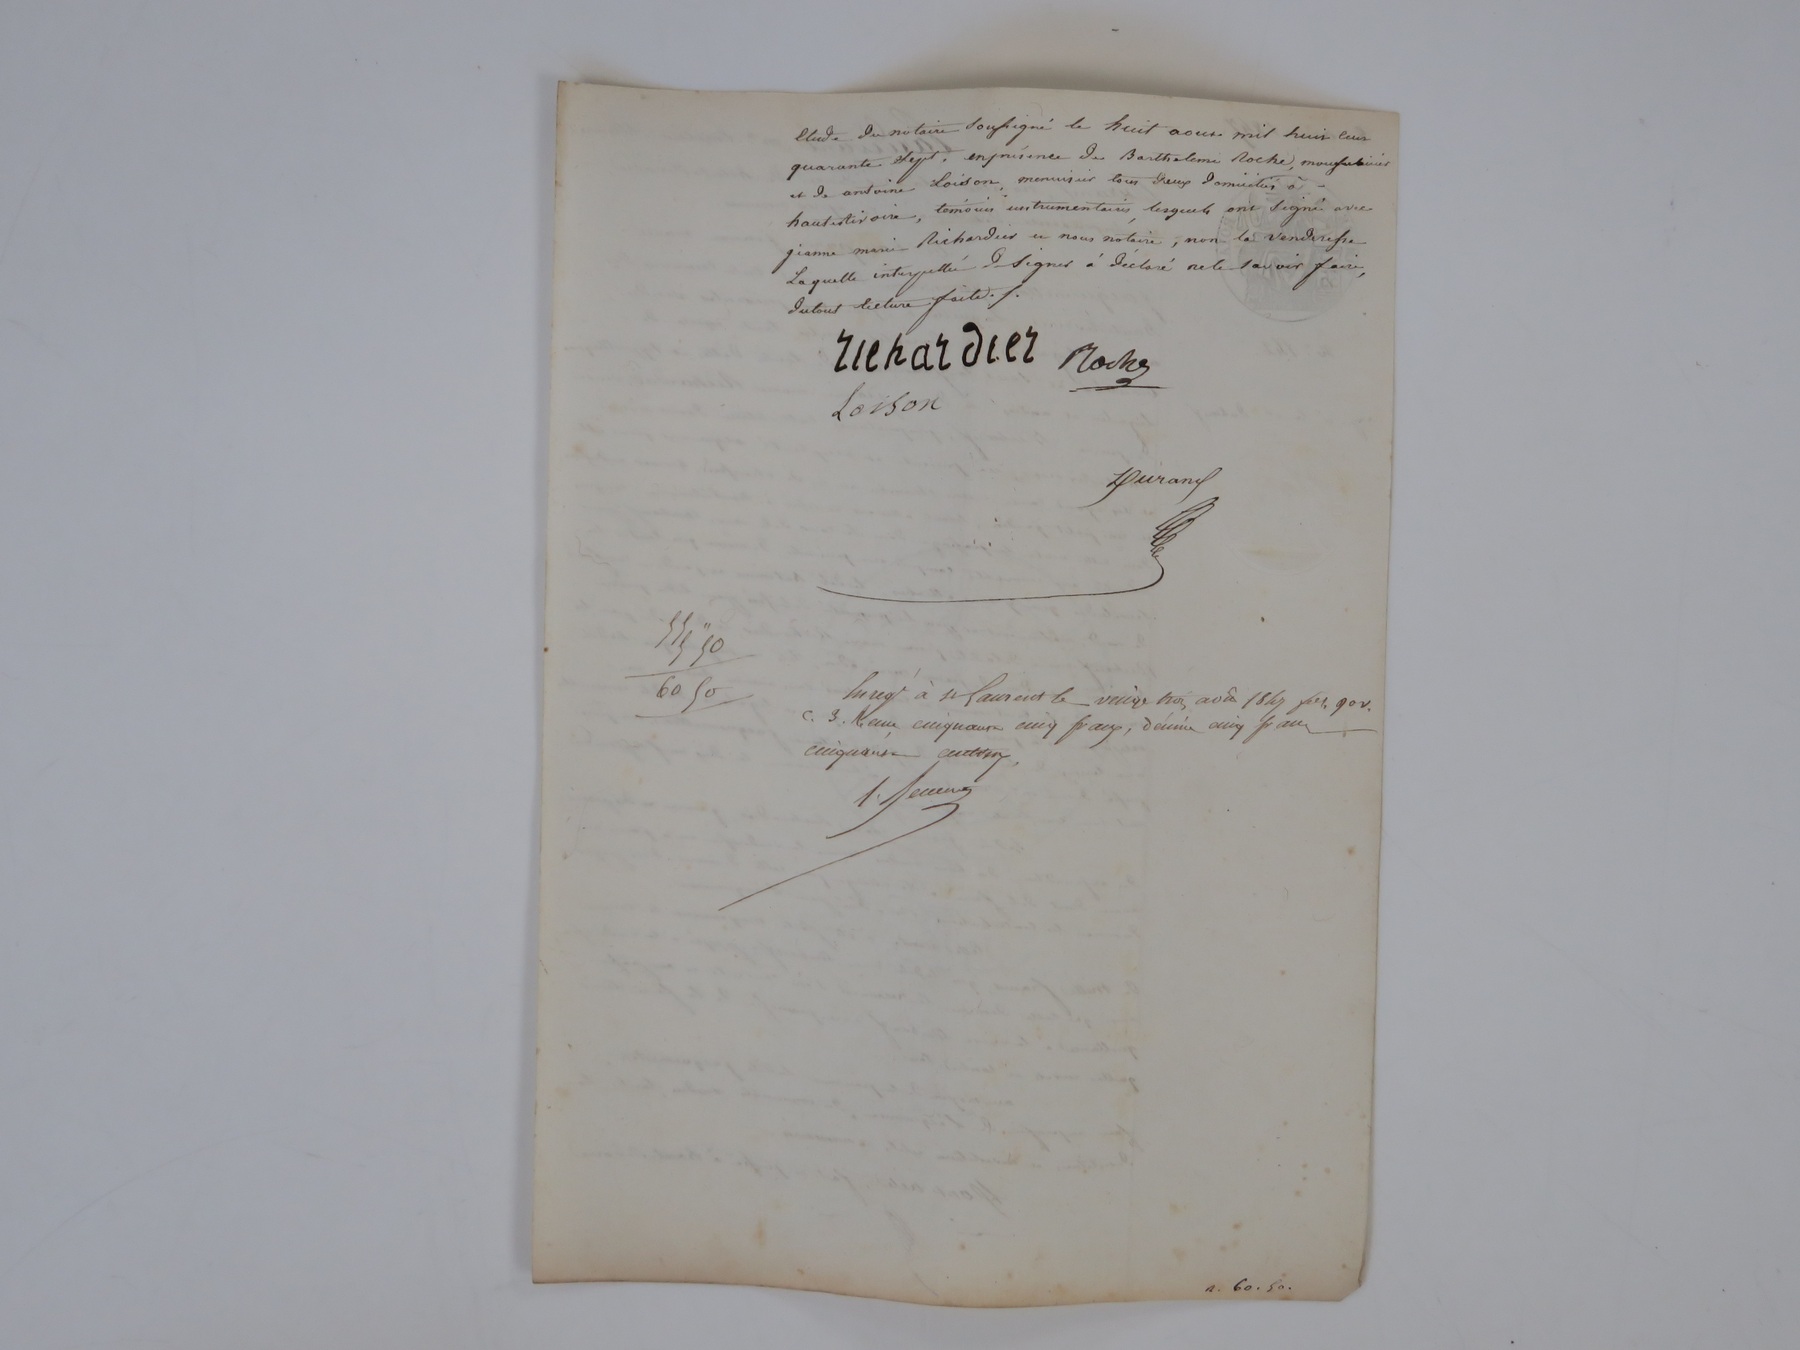 Etude du notaire soussigné le huit aout mil huit cent
quarante sept, en présence de Barthelemi Roche,
et de antoine Loison, menuisier tous deux domiciliés à
hauterivoire, temoins instrumentaires, lesquels ont signé avec
jeanne marie Richardier et nous notaire, non la venderesse
Laquelle interpellée de signer à déclaré ne le savoir faire,
du tout lecture faite./.
richardier Roche
Loison
Durand
55 " 
5 50
60 50
Enregt à st Laurent le vingt trois août 1847 fo 90 v.
c. 3. Reçu cinquante cinq francs, décime cinq francs
cinquante centimes,
r. 60. 50.